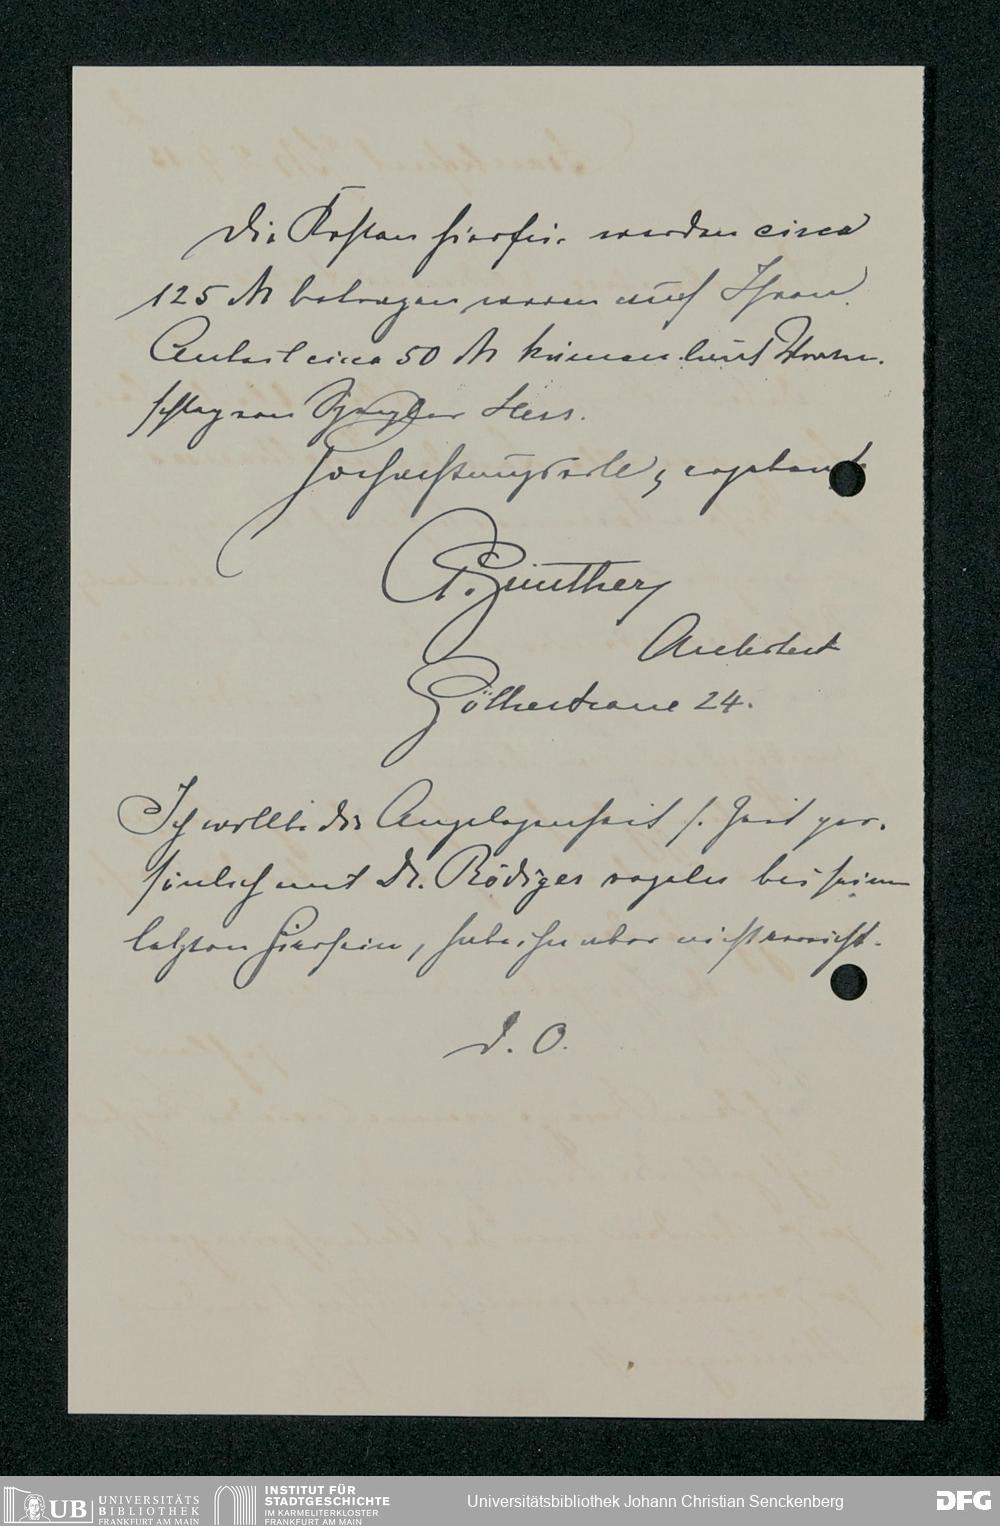 Die Kosten hierfür werden circa
125 M betragen wovon auf Ihren
Anteil circa 50 M kämen laut Voran-
schlag von Spengler Hess.
Hochachtungsvoll, ergebenst
Günther
Architect
Götherstrasse 24.
Ich wollte die Angelegenheit s. Zeit per-
sönlich mit Dr. Rödiger regeln bei seinem
letzten Hiersein, habe ihn aber nicht erreicht.
D. O.
UB UNIVERSITÄTS
BIBLIOTHEK
FRANKFURT AM MAIN
INSTITUT FÜR
STADTGESCHICHTE
IM KARMELITERKLOSTER
FRANKFURT AM MAIN
Universitätsbibliothek Johann Christian Senckenberg
DFG